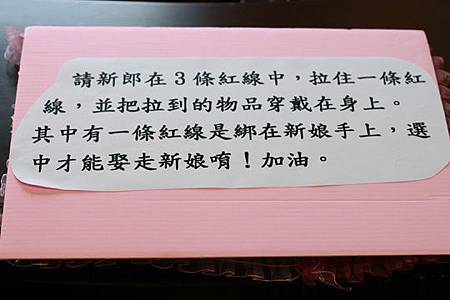 請新郎在3條紅線中，拉住一條紅
線，並把拉到的物品穿戴在身上。
其中有一條紅線是綁在新娘手上，選
中才能娶走新娘唷！加油。